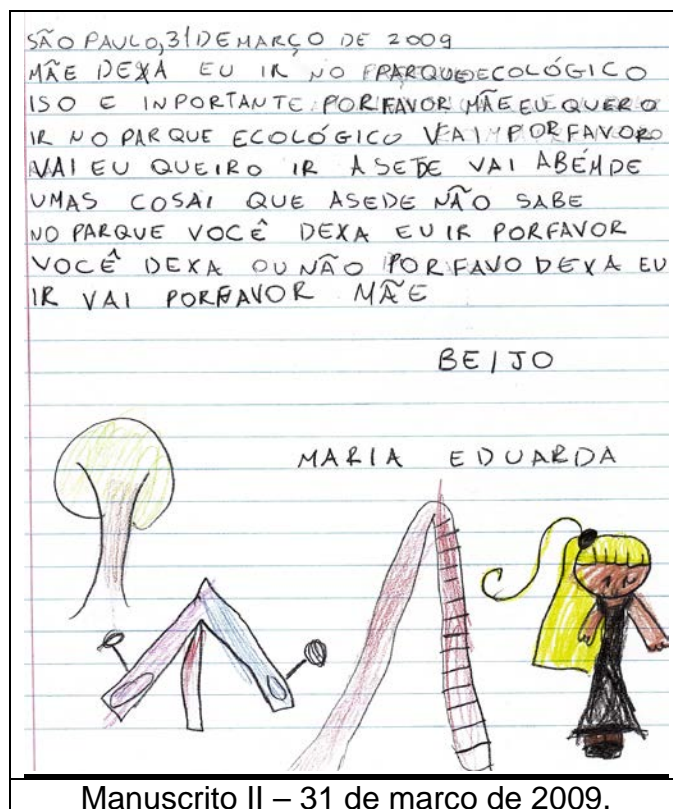 SÃO PAULO,31DEMARÇO DE 2009
MÃE DEXA EU IR NO PARQUEECOLÓGICO
ISO E INPORTANTE PORFAVOR MÃE EU QUERO
IR NO PARQUE ECOLÓGICO VAI PORFAVOR
VAI EU QUEIRO IR ASETE VAI
UMAS COSAI QUE ASEDE NÃO SABE
NO PARQUE VOCÊ DEXA EU IR PORFAVOR
VOCÊ DEXA OU NÃO PORFAVO DEXA EU
IR VAI PORFAVOR MÃE
BEIJO
MARIA EDUARDA
Manuscrito II – 31 de março de 2009.